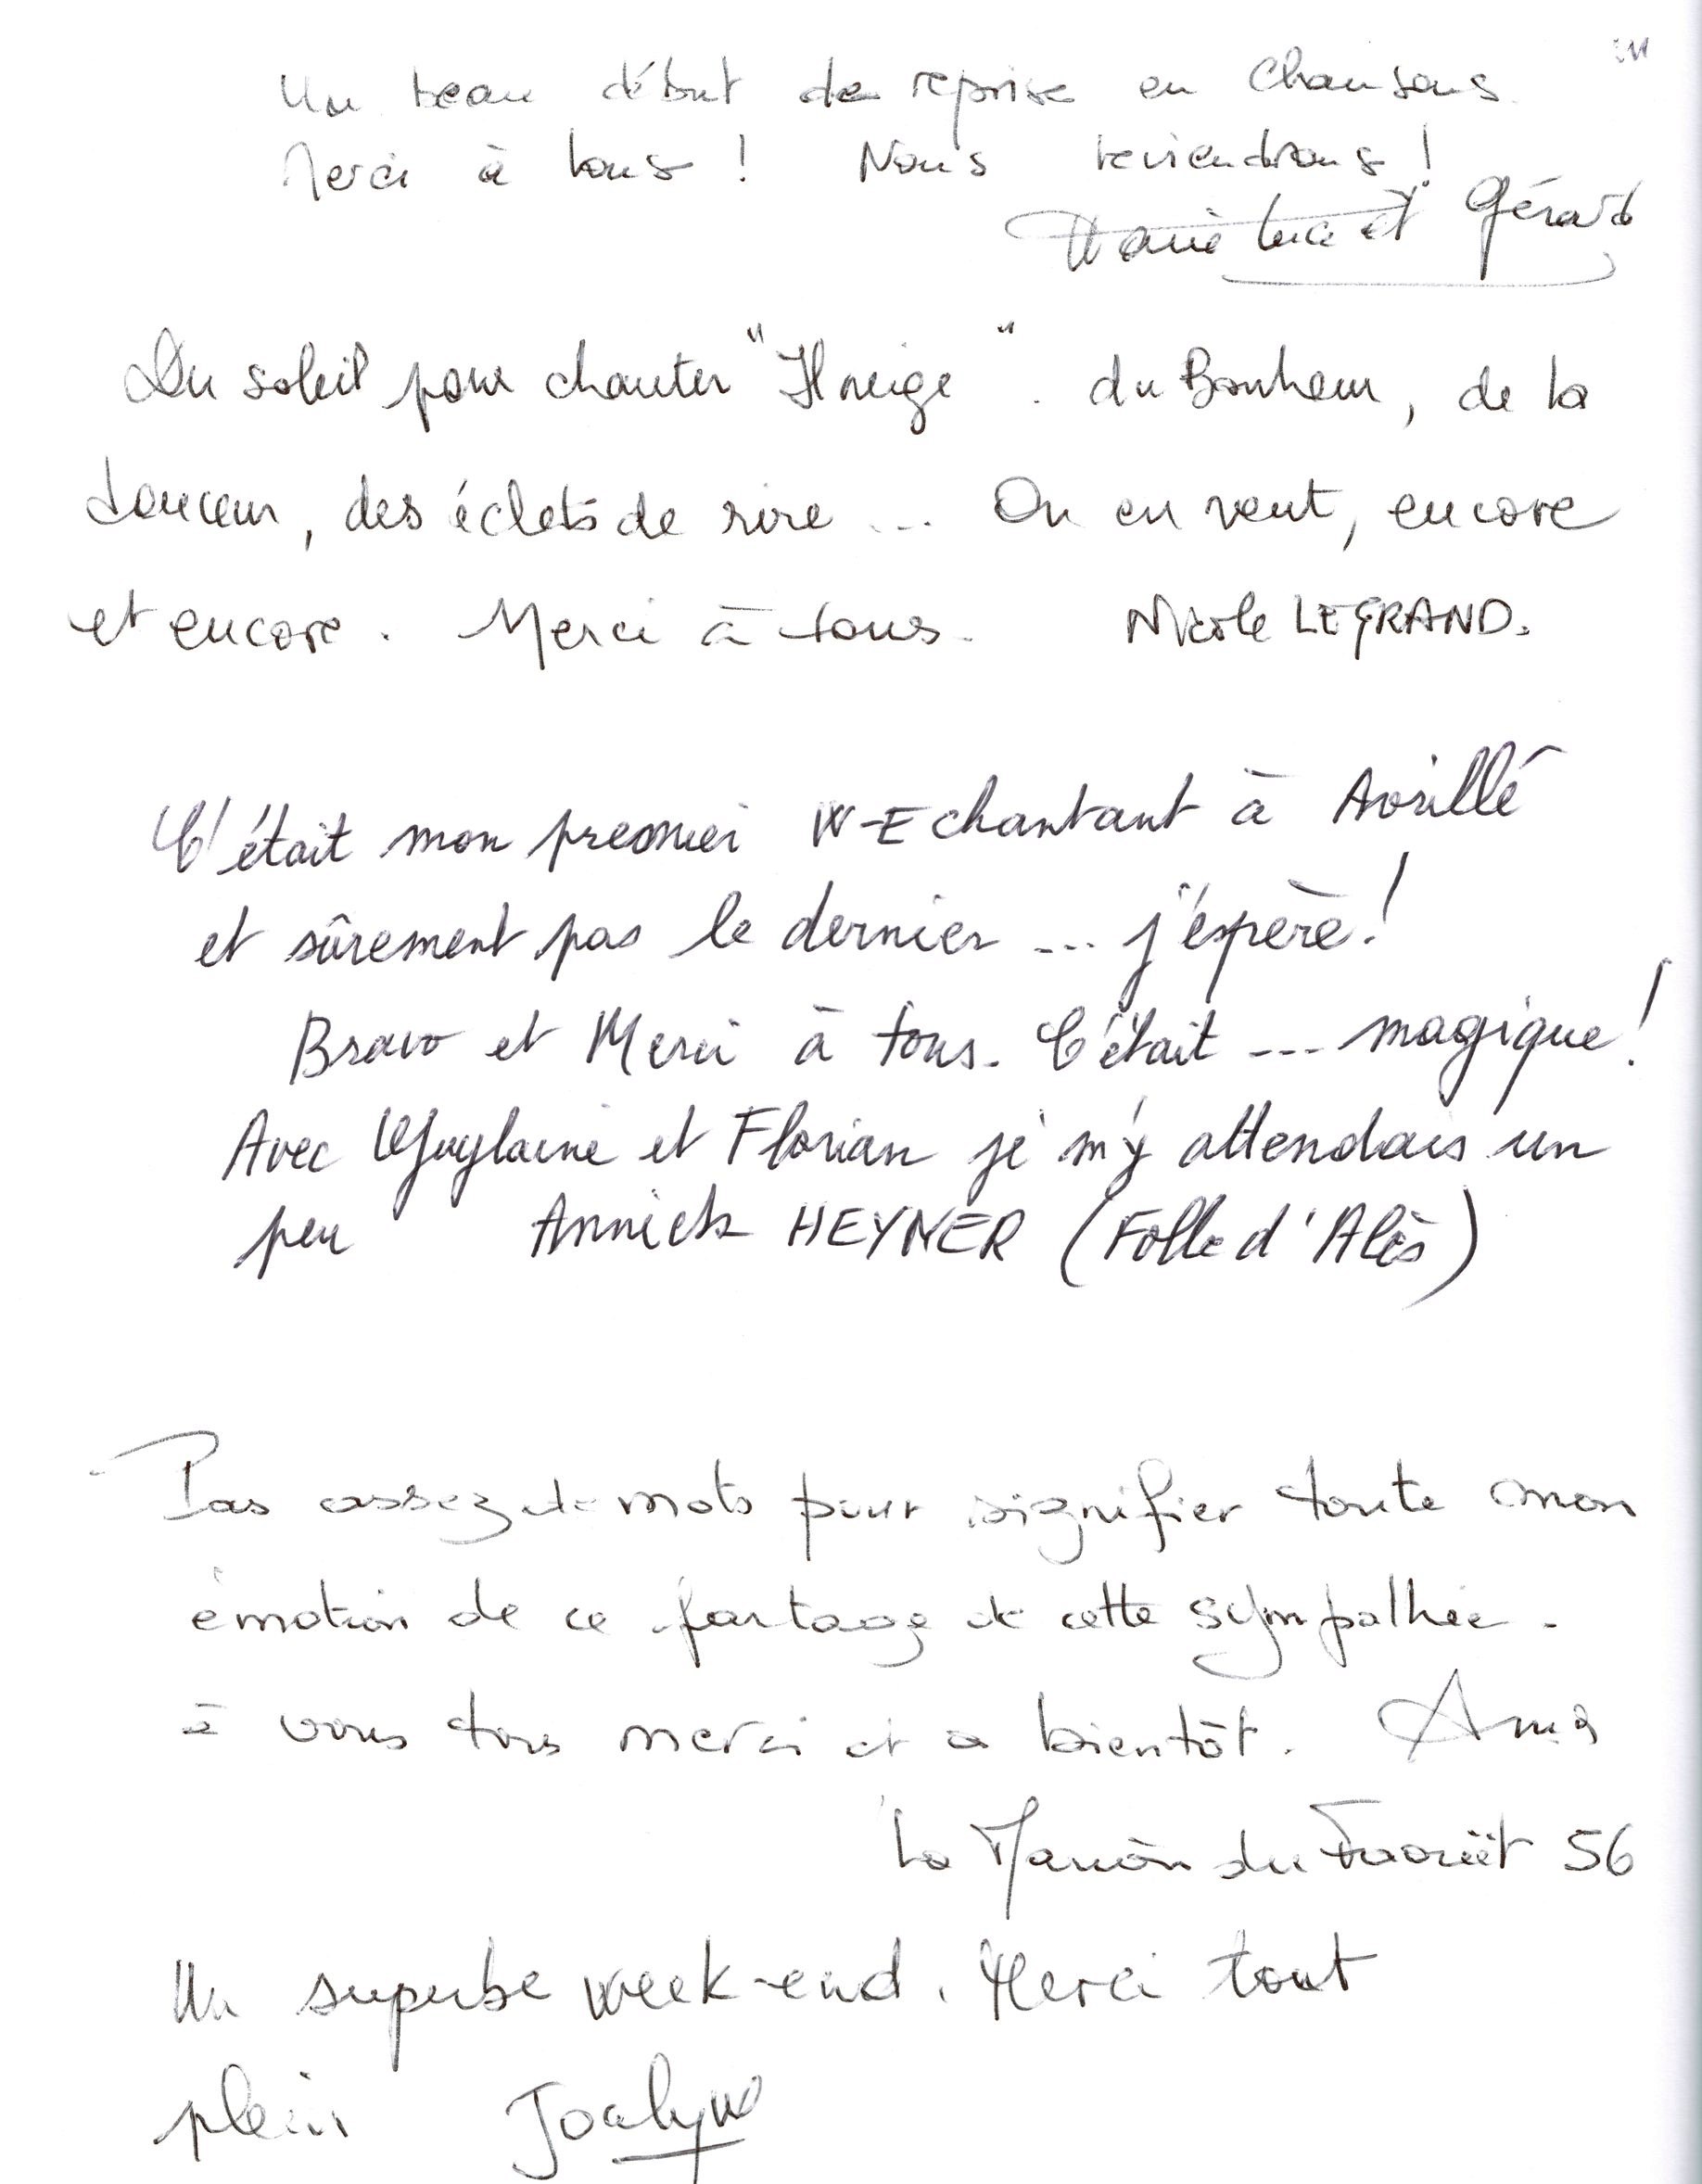 Un beau début de reprise en chansons
Merci à tous ! Nous reviendrons !
Marie Luce et Gérard
Du soleil pour chanter "Il neige". du Bonheur, de la
douceur, des éclats de rire ... On en veut, encore
et encore. Merci à tous. Nicole LEGRAND.
C'était mon premier W-E chantant à Avrillé
et sûrement pas le dernier ... j'espère !
Bravo et Merci à tous. C'était ... magique !
Avec Ghuylaine et Florian je m'y attendais un
peu Annick HEYNER (Folle d'Alès)
Pas assez de mots pour signifier toute mon
émotion de ce partage de cette sympathie.
à vous tous merci et a bientôt.
du Faouët 56
Un superbe week-end. Merci tout
plein Jocelyne